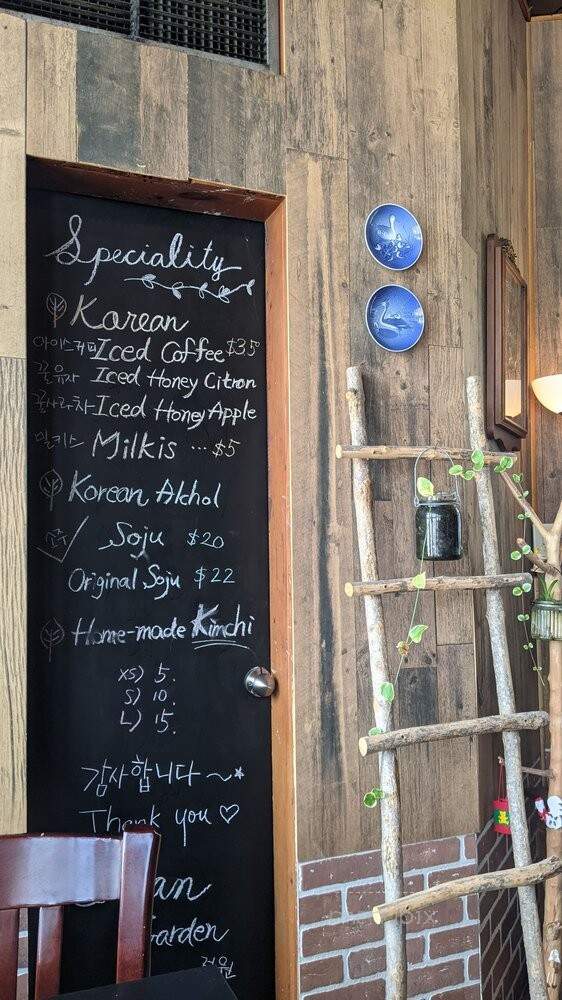 Speciality
Korean
아이스커피 Iced Coffee $35
꿀유자 Iced Honey Citron
꿀사과차 Iced Honey Apple
밀키스 Milkis ... $5
Korean Alchol
소주 Soju $20
Original Soju $22
Home-made Kimchi
XS) 5.
S) 10.
L) 15.
감사합니다 ~*
Thank you ♡
Garden
정원